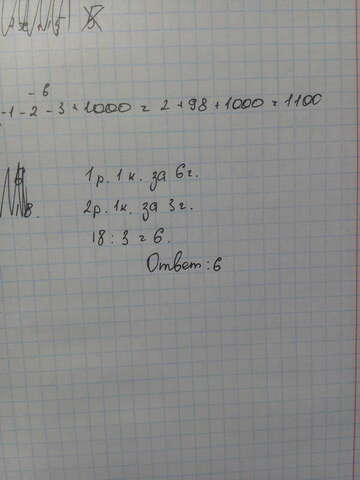 - 6
-1-2-3+1000 = 2+98+1000=1100
1р. 1к. за 6г.
8. 2р. 1к. за 3г.
18:3=6.
Ответ:6